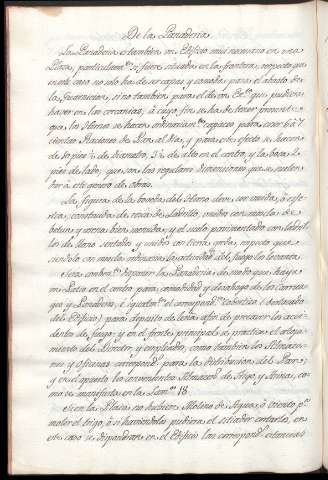 De la Panaderia
La Panaderia es tambien un Edificio muy necesario en una
Plaza, particularm.te si fuere situada en la frontera, respecto que
en este caso no solo ha de ser capaz y comoda para el abasto de
la Guarnicion, sino tambien para el de un Ex.to que pudiere
haver en las cercanias; à cuyo fin se ha de tener presente
que los Hornos se hacen ordinariam.te capaces para cocer 6 à 7
cientas Raciones de Pan al dia, y para este efecto se hacen
de 10 pies ½ de diametro, 3½ de alto en el centro, y la boca 2
pies de lado, que son las regulares dimensiones que se suelen
dar à este genero de obras.
La figura de la boveda del Horno deve ser ovada, ò esfe-
rica, construida de rosca de Ladrillo, unido con mezcla de
betun y arena bien menuda, y el suelo pavimentado con ladri-
llos de llano sentados y unidos con tierra greda, respecto que
siendolo con mezcla ordinaria la actividad del fuego los levanta.
Sera comben.te disponer la Panaderia de modo que haya
un Patio en el centro para comodidad y desahogo de los Carrua-
ges y Panaderos, è igualm.te el correspond.te cobertizo (separado
del Edificio) para deposito de leña afin de precaver los acci-
dentes de fuego; y en el frente principal se practica el aloja-
miento del Director y empleados, como tambien los Almace-
nes y Oficinas correspond.tes para la distribucion del Pan;
y en el opuesto los convenientes Almacen.s de Trigo, y Arina, co-
mo se manifiesta en la Lam.na 18.
Si en la Plaza no huviere Molino de Agua, ò Viento p.a
moler el trigo, ò si haviendolos pudiera el sitiador cortarlo, en
este caso se dispondran en el Edificio las correspond.tes estancias